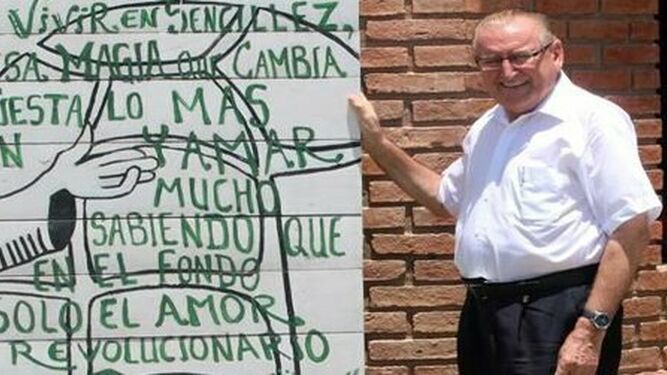 VIVIR EN SENCILLEZ,
SA MAGIA QUE CAMBIA
UESTA LO MAS
N Y AMAR
MUCHO
SABIENDO QUE
EN EL FONDO
SOLO EL AMOR
REVOLUCIONARIO